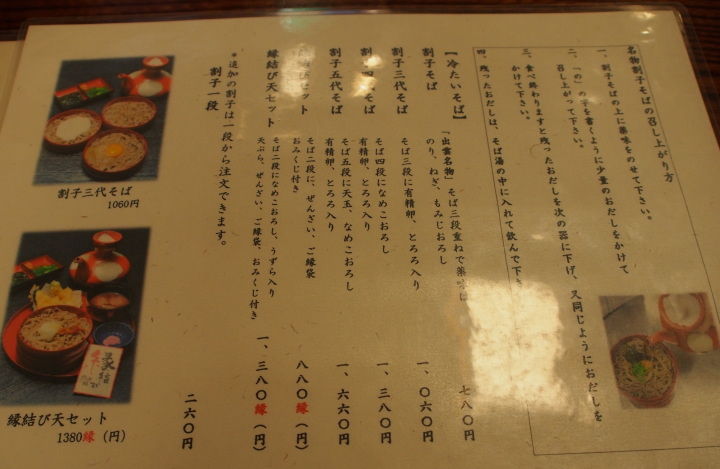 名物割子そばの召し上がり方
一、割子そばの上に薬味をのせて下さい。
二、「の」の字を書くように少量のおだしをかけて
召し上がって下さい。
三、食べ終わりますと残ったおだしを次の器に下げ、又同じようにおだしを
かけて下さい。
四、残ったおだしは、そば湯の中に入れて飲んで下さ
【冷たいそば】
割子そば
「出雲名物」そば三段重ねで薬味は
のり、ねぎ、もみじおろし
七八〇円
割子三代そば
そば三段に有精卵、とろろ入り
一、〇六〇円
割子四代そば
そば四段になめこおろし
有精卵、とろろ入り
一、三八〇円
割子五代そば
そば五段に天玉、なめこおろし
有精卵、とろろ入り
一、六六〇円
縁結びセット
そば二段に、ぜんざい、ご縁袋
おみくじ付き
八八〇縁(円)
縁結び天セット
そば二段になめこおろし、うずら入り
天ぷら、ぜんざい、ご縁袋、おみくじ付き
一、三八〇縁(円)
*追加の割子は一段から注文できます。
割子一段
二六〇円
割子三代そば
1060円
縁結び天セット
1380縁(円)